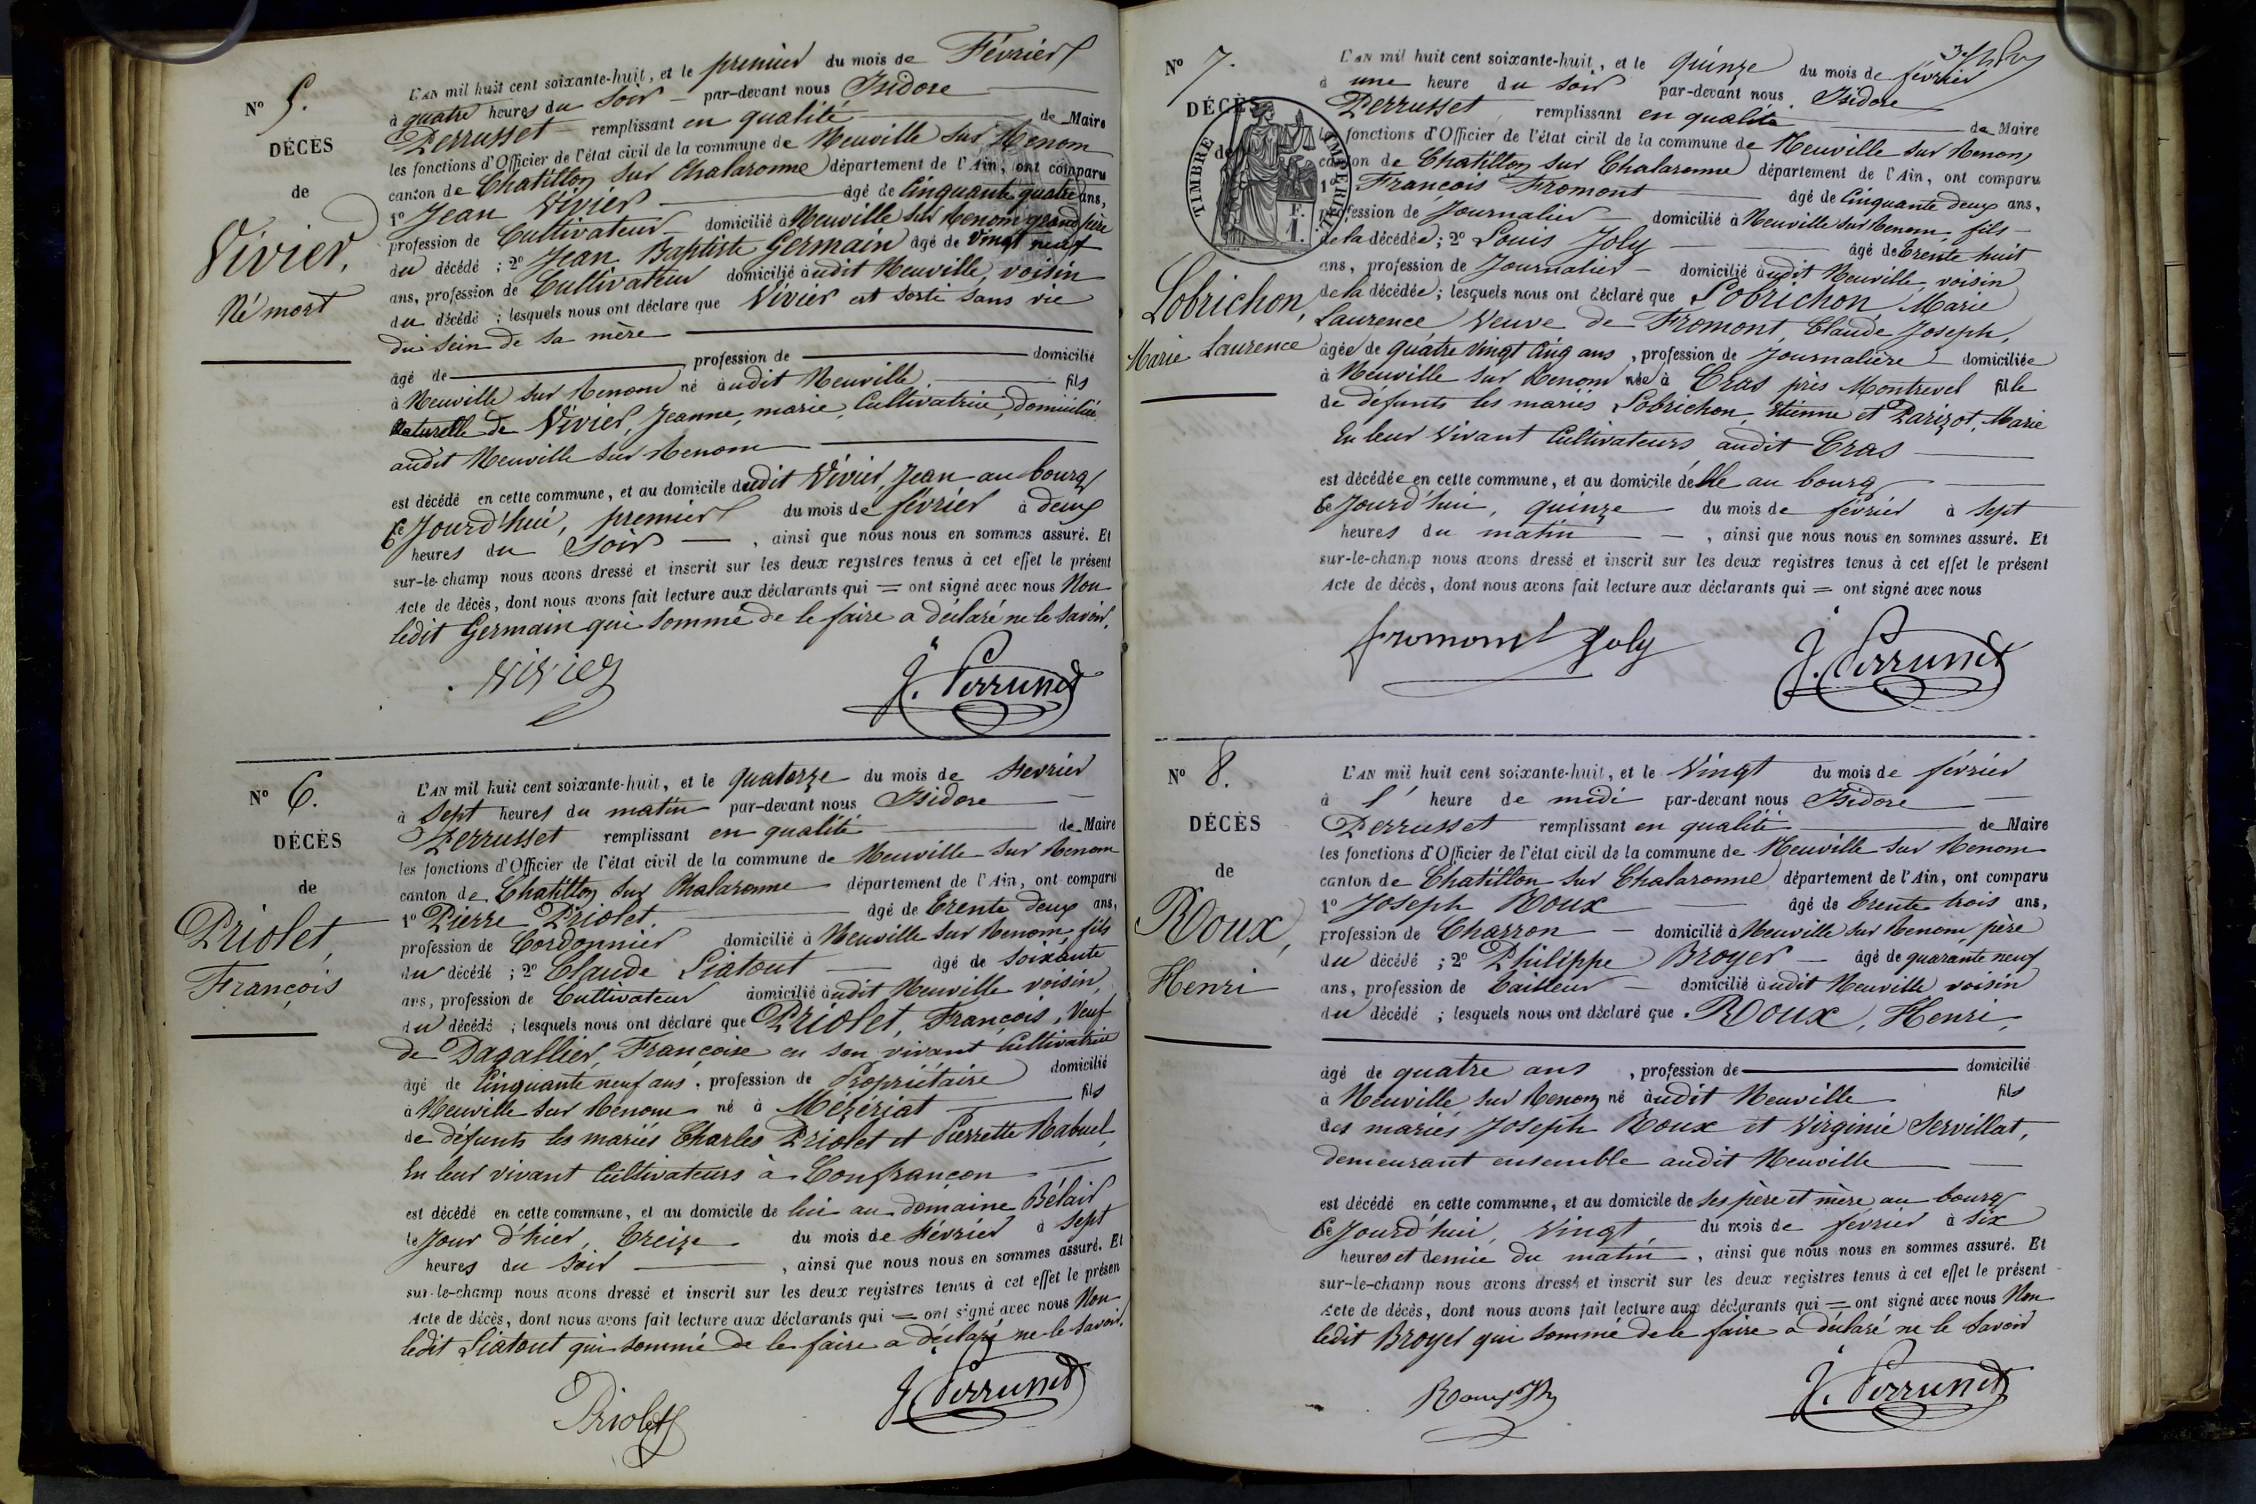 N° 5.
DÉCÈS
de
Vivier,
Né mort
L'AN mil huit cent soixante-huit, et le premier du mois de Février
à quatre heures du Soir par-devant nous Isidore
Perrusset remplissant en qualité de Maire
les fonctions d'Officier de l'état civil de la commune de Neuville sur Renom
canton de Chatillon sur Chalaronne département de l'Ain, ont comparu
1° Jean Vivier âgé de Cinquante quatre ans,
profession de Cultivateur domicilié à Neuville sur Renom grand père
du décédé ; 2° Jean Baptiste Germain âgé de Vingt neuf
ans, profession de Cultivateur domicilié à udit Neuville, voisin
du décédé ; lesquels nous ont déclaré que Vivier est sorti sans vie
du sein de sa mère
âgé de profession de domicilié
à Neuville sur Renom né à udit Neuville fils
Naturelle de Vivier, Jeanne, marie, Cultivatrice, domiciliée
audit Neuville sur Renom
est décédé en cette commune, et au domicile dudit Vivier, Jean au bourg
Ce Jourd'hui, premier du mois de février à deux
heures du Soir , ainsi que nous nous en sommes assuré. Et
sur-le-champ nous avons dressé et inscrit sur les deux registres tenus à cet effet le présent
Acte de décès, dont nous avons fait lecture aux déclarants qui = ont signé avec nous Non
ledit Germain qui sommé de le faire a déclaré ne le savoir.
Vivier
J. Perrusset
N° 6.
DÉCÈS
de
Priolet,
François
L'AN mil huit cent soixante-huit, et le quatorze du mois de Février
à Sept heures du matin par-devant nous Isidore
Perrusset remplissant en qualité de Maire
les fonctions d'Officier de l'état civil de la commune de Neuville sur Renom
canton de Chatillon sur Chalaronne département de l'Ain, ont comparu
1° Pierre Priolet âgé de Trente deux ans,
profession de Cordonnier domicilié à Neuville sur Renom, fils
du décédé ; 2° Claude Liatout âgé de soixante
ans, profession de Cultivateur domicilié à udit Neuville voisin,
du décédé ; lesquels nous ont déclaré que Priolet, François, Veuf
de Dagallier, Françoise en son vivant Cultivatrice
âgé de Cinquante neuf ans, profession de Propriétaire domicilié
à Neuville sur Renom né à Mézériat fils
de défunts les mariés Charles Priolet et Pierrette Rabuel,
En leur vivant Cultivateurs à Confrançon
est décédé en cette commune, et au domicile de lui au domaine Bélair
le Jour d'hier, Treize du mois de Février à Sept
heures du Soir , ainsi que nous nous en sommes assuré. Et
sur-le-champ nous avons dressé et inscrit sur les deux registres tenus à cet effet le présen
Acte de décès, dont nous avons fait lecture aux déclarants qui = ont signé avec nous Non
ledit Liatout qui sommé de le faire a déclaré ne le savoir.
Priolet
J. Perrusset
N° 7.
DÉCÈS
de
TIMBRE IMPÉRIAL
F.
1.
Lobrichon,
Marie Laurence
L'AN mil huit cent soixante-huit, et le quinze du mois de février
à une heure du soir par-devant nous Isidore
Perrusset remplissant en qualité de Maire
les fonctions d'Officier de l'état civil de la commune de Neuville sur Renom
canton de Chatillon sur Chalaronne département de l'Ain, ont comparu
1° François Fromont âgé de Cinquante deux ans,
profession de Journalier domicilié à Neuville sur Renom, fils
de la décédée ; 2° Louis Joly âgé de Trente huit
ans, profession de Journalier domicilié à udit Neuville, voisin
de la décédée ; lesquels nous ont déclaré que Lobrichon, Marie
Laurence Veuve de Fromont, Claude Joseph,
âgée de quatre Vingt Cinq ans, profession de Journalière domiciliée
à Neuville sur Renom née à Cras près Montrevel fille
de défunts les mariés Lobrichon, Etienne et Parizot, Marie
En leur Vivant Cultivateurs audit Cras
est décédée en cette commune, et au domicile d'elle au bourg
Ce Jourd'hui, quinze du mois de février à sept
heures du matin , ainsi que nous nous en sommes assuré. Et
sur-le-champ nous avons dressé et inscrit sur les deux registres tenus à cet effet le présent
Acte de décès, dont nous avons fait lecture aux déclarants qui = ont signé avec nous
fromont Joly
J. Perrusset
N° 8.
DÉCÈS
de
Roux,
Henri
L'AN mil huit cent soixante-huit, et le Vingt du mois de février
à l' heure de midi par-devant nous Isidore
Perrusset remplissant en qualité de Maire
les fonctions d'Officier de l'état civil de la commune de Neuville sur Renom
canton de Chatillon sur Chalaronne département de l'Ain, ont comparu
1° Joseph Roux âgé de Trente trois ans,
profession de Charron domicilié à Neuville sur Renom, père
du décédé ; 2° Philippe Broyer âgé de quarante neuf
ans, profession de Tailleur domicilié à udit Neuville voisin
du décédé ; lesquels nous ont déclaré que Roux, Henri,
âgé de quatre ans , profession de domicilié
à Neuville sur Renom né à udit Neuville fils
des mariés Joseph Roux et Virginie Servillat,
demeurant ensemble audit Neuville
est décédé en cette commune, et au domicile de ses père et mère au bourg
Ce Jourd'hui, Vingt du mois de février à six
heures et demie du matin , ainsi que nous nous en sommes assuré. Et
sur-le-champ nous avons dressé et inscrit sur les deux registres tenus à cet effet le présent
Acte de décès, dont nous avons fait lecture aux déclarants qui = ont signé avec nous Non
ledit Broyer qui sommé de le faire a déclaré ne le savoir
Roux
J. Perrusset